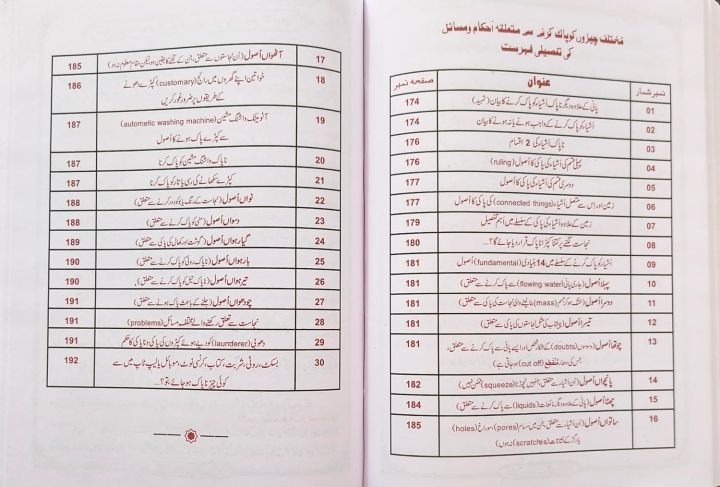 مختلف چیزوں کو پاک کرنے سے متعلقہ اَحکام و مسائل
کی تفصیلی فہرست
نمبر شمار عنوان صفحہ نمبر
01 پانی کے علاوہ دیگر ناپاک اَشیاء کو پاک کرنے کا بیان (تمہید) 174
02 اَشیاء کو پاک کرنے کے واجب ہونے یا نہ ہونے کا بیان 174
03 ناپاک اَشیاء کی 2 اقسام 176
04 پہلی قسم کی اَشیاء کی پاکی کا اُصول (ruling) 176
05 دوسری قسم کی اَشیاء کی پاکی کا اُصول 177
06 زمین اور اِس سے متصل اَشیاء (connected things) کی پاکی کا اُصول 177
07 زمین کے علاوہ اَشیاء کی پاکی کے سلسلے میں اَہم تفصیل 179
08 نجاست لگنے پر کتنا کپڑا ناپاک قرار دیا جائے گا؟... 180
09 اَشیاء کو پاک کرنے کے سلسلے میں 14 بنیادی (fundamental) اُصول 181
10 پہلا اُصول (جاری پانی (flowing water) سے پاک کرنے سے متعلق) 181
11 دوسرا اُصول (خشک ہو کر جسم (mass) والی نجاست کی پاکی سے متعلق) 181
12 تیسرا اُصول (پیشاب کی مثل نجاستوں کی پاکی سے متعلق) 181
13 چوتھا اُصول (وسوسوں (doubts) کے شکار شخص اور ایسے پانی سے پاک کرنے سے متعلق، 181
جس کی دھار منقطع (cut off) ہو جاتی ہے)
14 پانچواں اُصول (اُن اَشیاء سے متعلق، جنہیں نچوڑنا (squeeze) ممکن نہیں) 182
15 چھٹا اُصول (پانی کے علاوہ دیگر مائعات (liquids) سے پاک کرنے سے متعلق) 184
16 ساتواں اُصول (اُن اَشیاء سے متعلق، جن میں مسام (pores)، سوراخ (holes) 185
یا رگڑ کے نشانات (scratches) نہ ہوں)
17 آٹھواں اُصول (اُن نجاستوں سے متعلق، جن کے لگنے کا یقین ہو لیکن مقام معلوم نہ ہو) 185
18 خواتین اپنے گھروں میں رائج (customary) کپڑے دھونے 186
کے طریقوں پر ضرور غور کریں
19 آٹومیٹک واشنگ مشین (autometic washing machine) 187
سے کپڑے پاک ہونے کا اُصول
20 ناپاک واشنگ مشین کو پاک کرنا 187
21 کپڑے سکھانے کی رسی یا تار کو پاک کرنا 187
22 نواں اُصول (نجاست کے رنگ یا بُو کو دور کرنے سے متعلق) 188
23 دسواں اُصول (مٹی کو پاک کرنے سے متعلق) 188
24 گیارہواں اُصول (گوشت اور کھال کی پاکی سے متعلق) 189
25 بارہواں اُصول (ناپاک روئی کو پاک کرنے سے متعلق) 190
26 تیرہواں اُصول (ناپاک تیل کو پاک کرنے سے متعلق) 190
27 چودھواں اُصول (جلنے کے باعث پاک ہونے سے متعلق) 191
28 نجاست سے تعلق رکھنے والے مختلف مسائل (problems) 191
29 دھوبی (launderer) کو دیے ہوئے کپڑوں کی پاکی و ناپاکی کا حکم 191
30 بسکٹ، روٹی، شربت، کتاب، کرنسی نوٹ، موبائل یا لیپ ٹاپ میں سے 192
کوئی چیز ناپاک ہو جائے، تو؟...